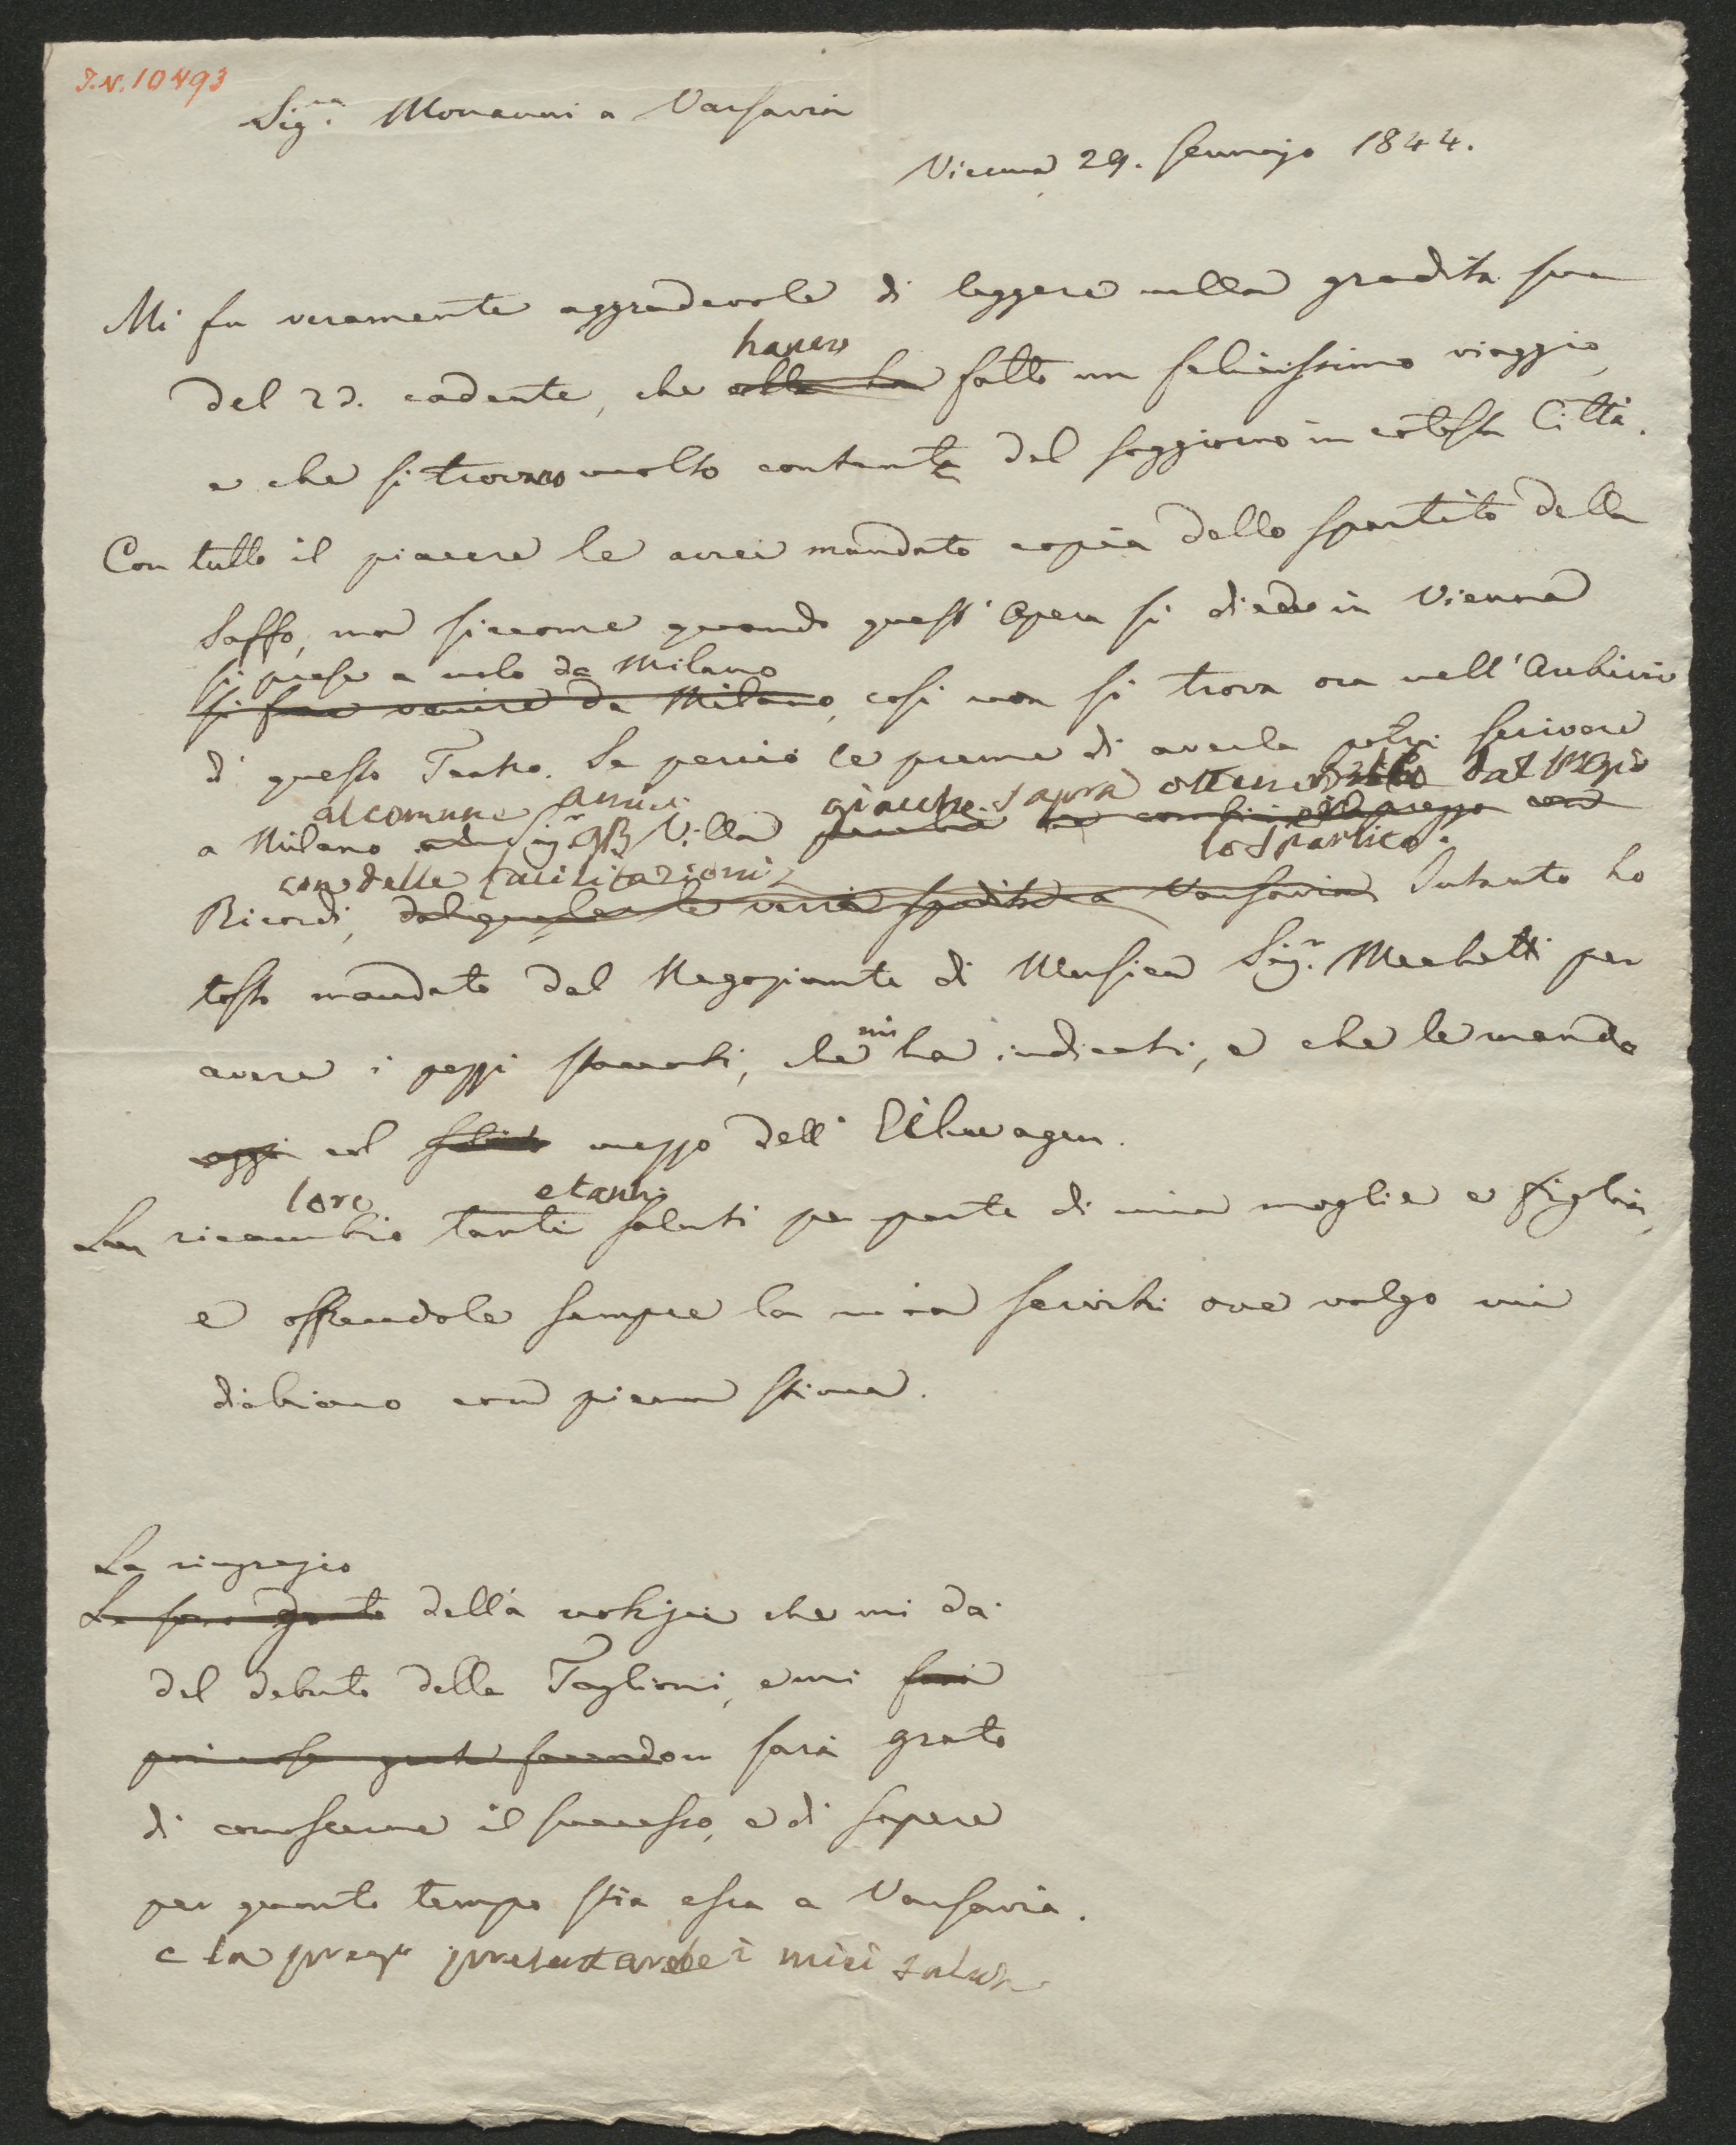 I.N. 10493
Sig.ra Monanni a Varsavia
Vienna 29. Gennajo 1844.
Mi fu veramente aggradevole di leggere nella gradita sua
hanno
del 23. cadente, che ella ha fatto un felicissimo viaggio,
e che si trovano molto contente del soggiorno in cotesta Città.
Con tutto il piacere le avrei mandato copia dello spartito della
Saffo, ma siccome quando quest' Opera si diede in Vienna
si prese a nolo da Milano
si fece venire da Milano, così non si trova ora nell' Archivio
di questo Teatro. Se perciò le preme di averla potrà scrivere
al comune amico giacché saprà ottenere dal
a Milano al Sig.r GB Villa perché ne combini il prezzo con
con delle facilitazioni lo spartito.
Ricordi, dal quale le verrà spedito a Varsavia Intanto ho
tosto mandato dal Negoziante di Musica Sig.r Mechetti per
avere i pezzi staccati, che mi ha indicati, e che le mando
oggi col mezzo dell' Eilwagen.
loro e tanti
ricambio tanti saluti per parte di mia moglie e figlia,
e offrendole sempre la mia servitù ove valgo mi
dichiaro con piena stima.
La ringrazio
Le sono grato della notizia che mi dà
del debutto della Taglioni, e mi farà
più cosa grata facendom sarà grato
di conoscerne il successo, e di sapere
per quanto tempo stia essa a Varsavia.
e la prego presentarle i miei saluti